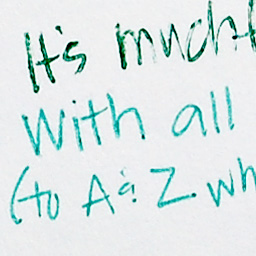 It's much
With all
(to A & Z wh